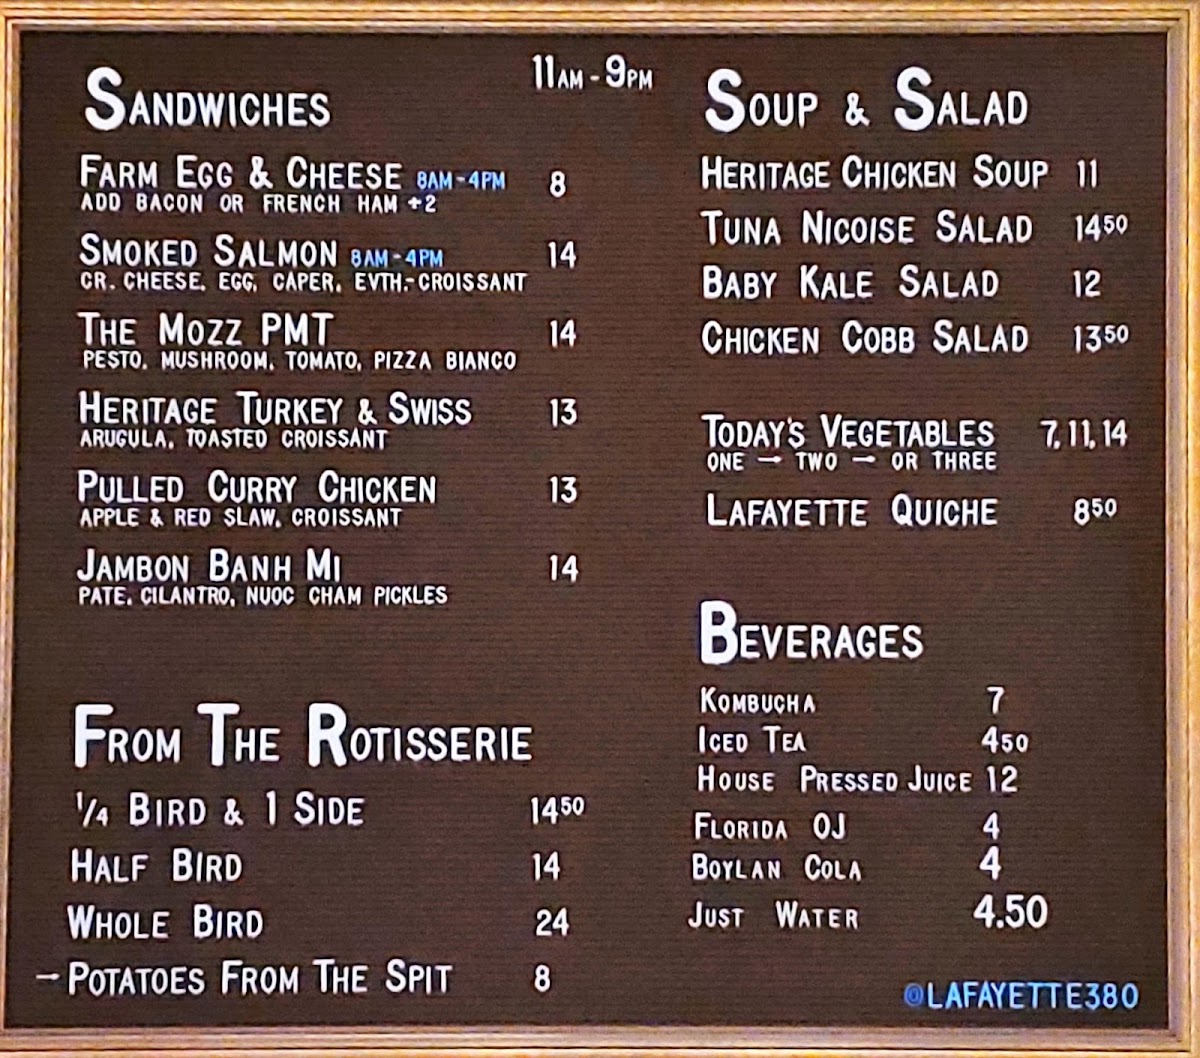 11AM - 9PM
SANDWICHES
FARM EGG & CHEESE 8AM-4PM 8
ADD BACON OR FRENCH HAM +2
SMOKED SALMON 8AM-4PM 14
CR. CHEESE, EGG, CAPER, EVTH.-CROISSANT
THE MOZZ PMT 14
PESTO, MUSHROOM, TOMATO, PIZZA BIANCO
HERITAGE TURKEY & SWISS 13
ARUGULA, TOASTED CROISSANT
PULLED CURRY CHICKEN 13
APPLE & RED SLAW, CROISSANT
JAMBON BANH MI 14
PATE, CILANTRO, NUOC CHAM PICKLES
FROM THE ROTISSERIE
1/4 BIRD & 1 SIDE 1450
HALF BIRD 14
WHOLE BIRD 24
→ POTATOES FROM THE SPIT 8
SOUP & SALAD
HERITAGE CHICKEN SOUP 11
TUNA NICOISE SALAD 1450
BABY KALE SALAD 12
CHICKEN COBB SALAD 1350
TODAY'S VEGETABLES 7, 11, 14
ONE → TWO → OR THREE
LAFAYETTE QUICHE 850
BEVERAGES
KOMBUCHA 7
ICED TEA 450
HOUSE PRESSED JUICE 12
FLORIDA OJ 4
BOYLAN COLA 4
JUST WATER 4.50
@LAFAYETTE380